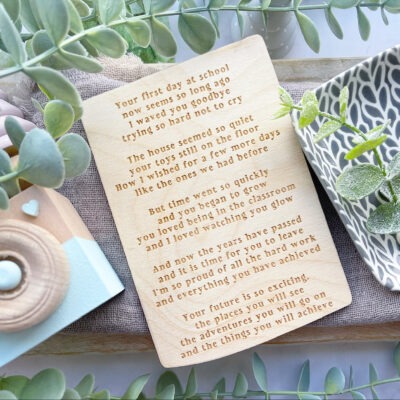 Your first day at school
now seems so long ago
I waved you goodbye
trying so hard not to cry
The house seemed so quiet
your toys still on the floor
How I wished for a few more days
like the ones we had before
But time went so quickly
and you began to grow
you loved being in the classroom
and I loved watching you glow
And now the years have passed
and it is time for you to leave
I'm so proud of all the hard work
and everything you have achieved
Your future is so exciting,
the places you will see
the adventures you will go on
and the things you will achieve